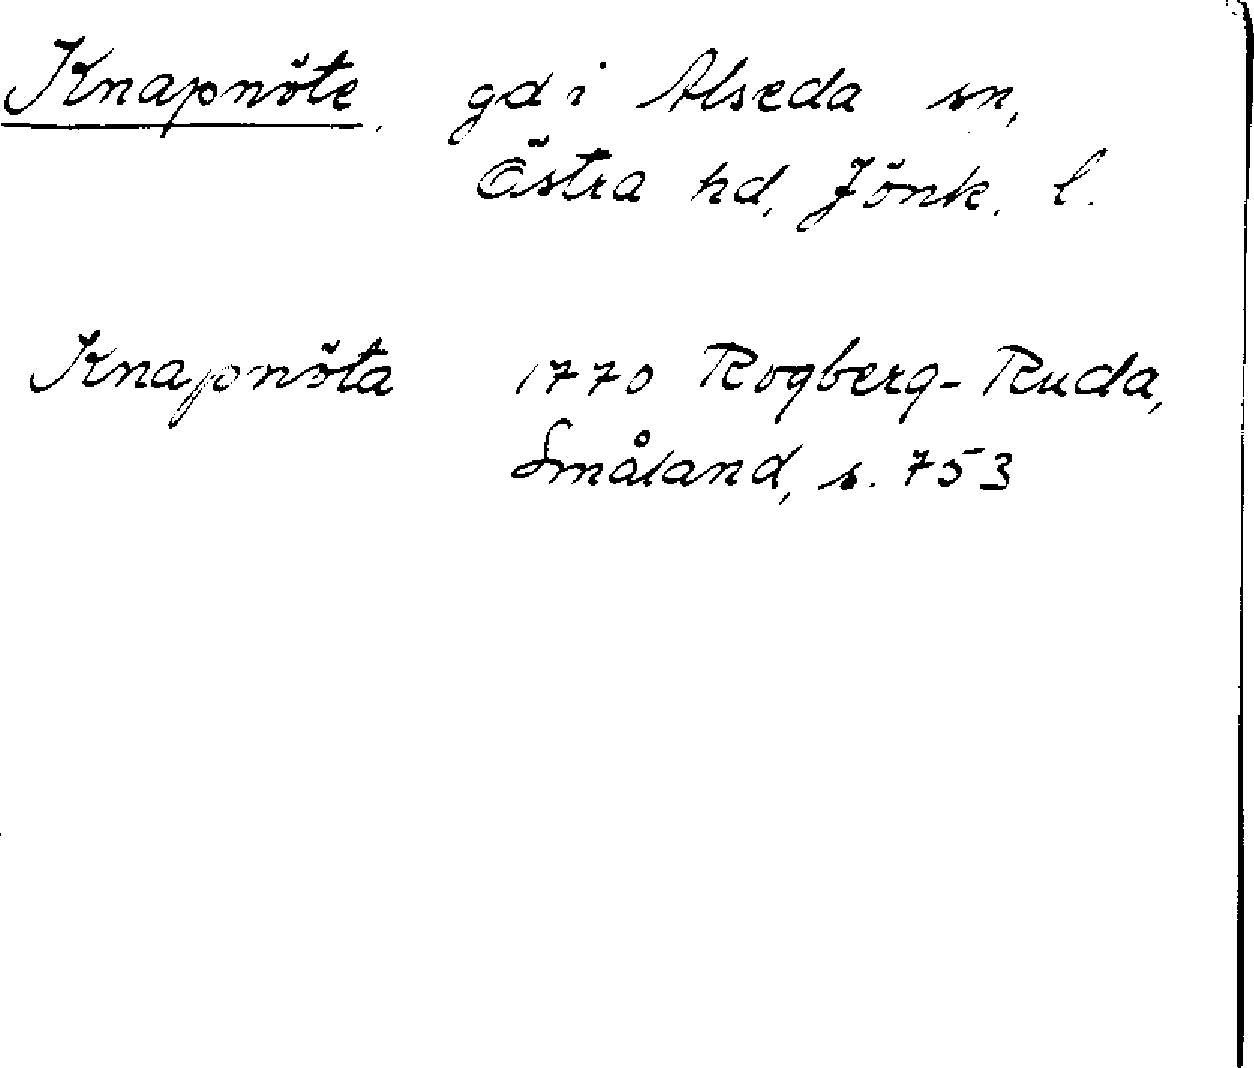 Knapnöte, gd i Alseda sn,
Östra hd, Jönk. l.
Knapnöta 1770 Rogberg-Ruda,
Småland, s. 753